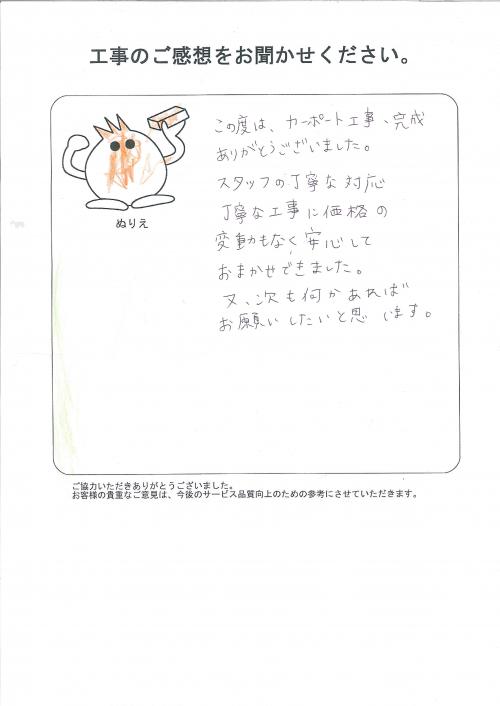 工事のご感想をお聞かせください。
この度は、カーポート工事、完成
ありがとうございました。
スタッフの丁寧な対応
丁寧な工事に価格の
変動もなく安心して
おまかせできました。
又、次も何かあれば
お願いしたいと思います。
ぬりえ
ご協力いただきありがとうございました。
お客様の貴重なご意見は、今後のサービス品質向上のための参考にさせていただきます。